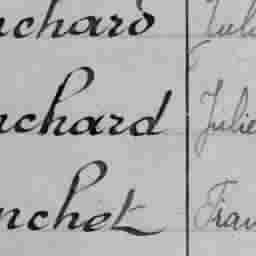 nchard Jul
nchard Julie
nchet Fran